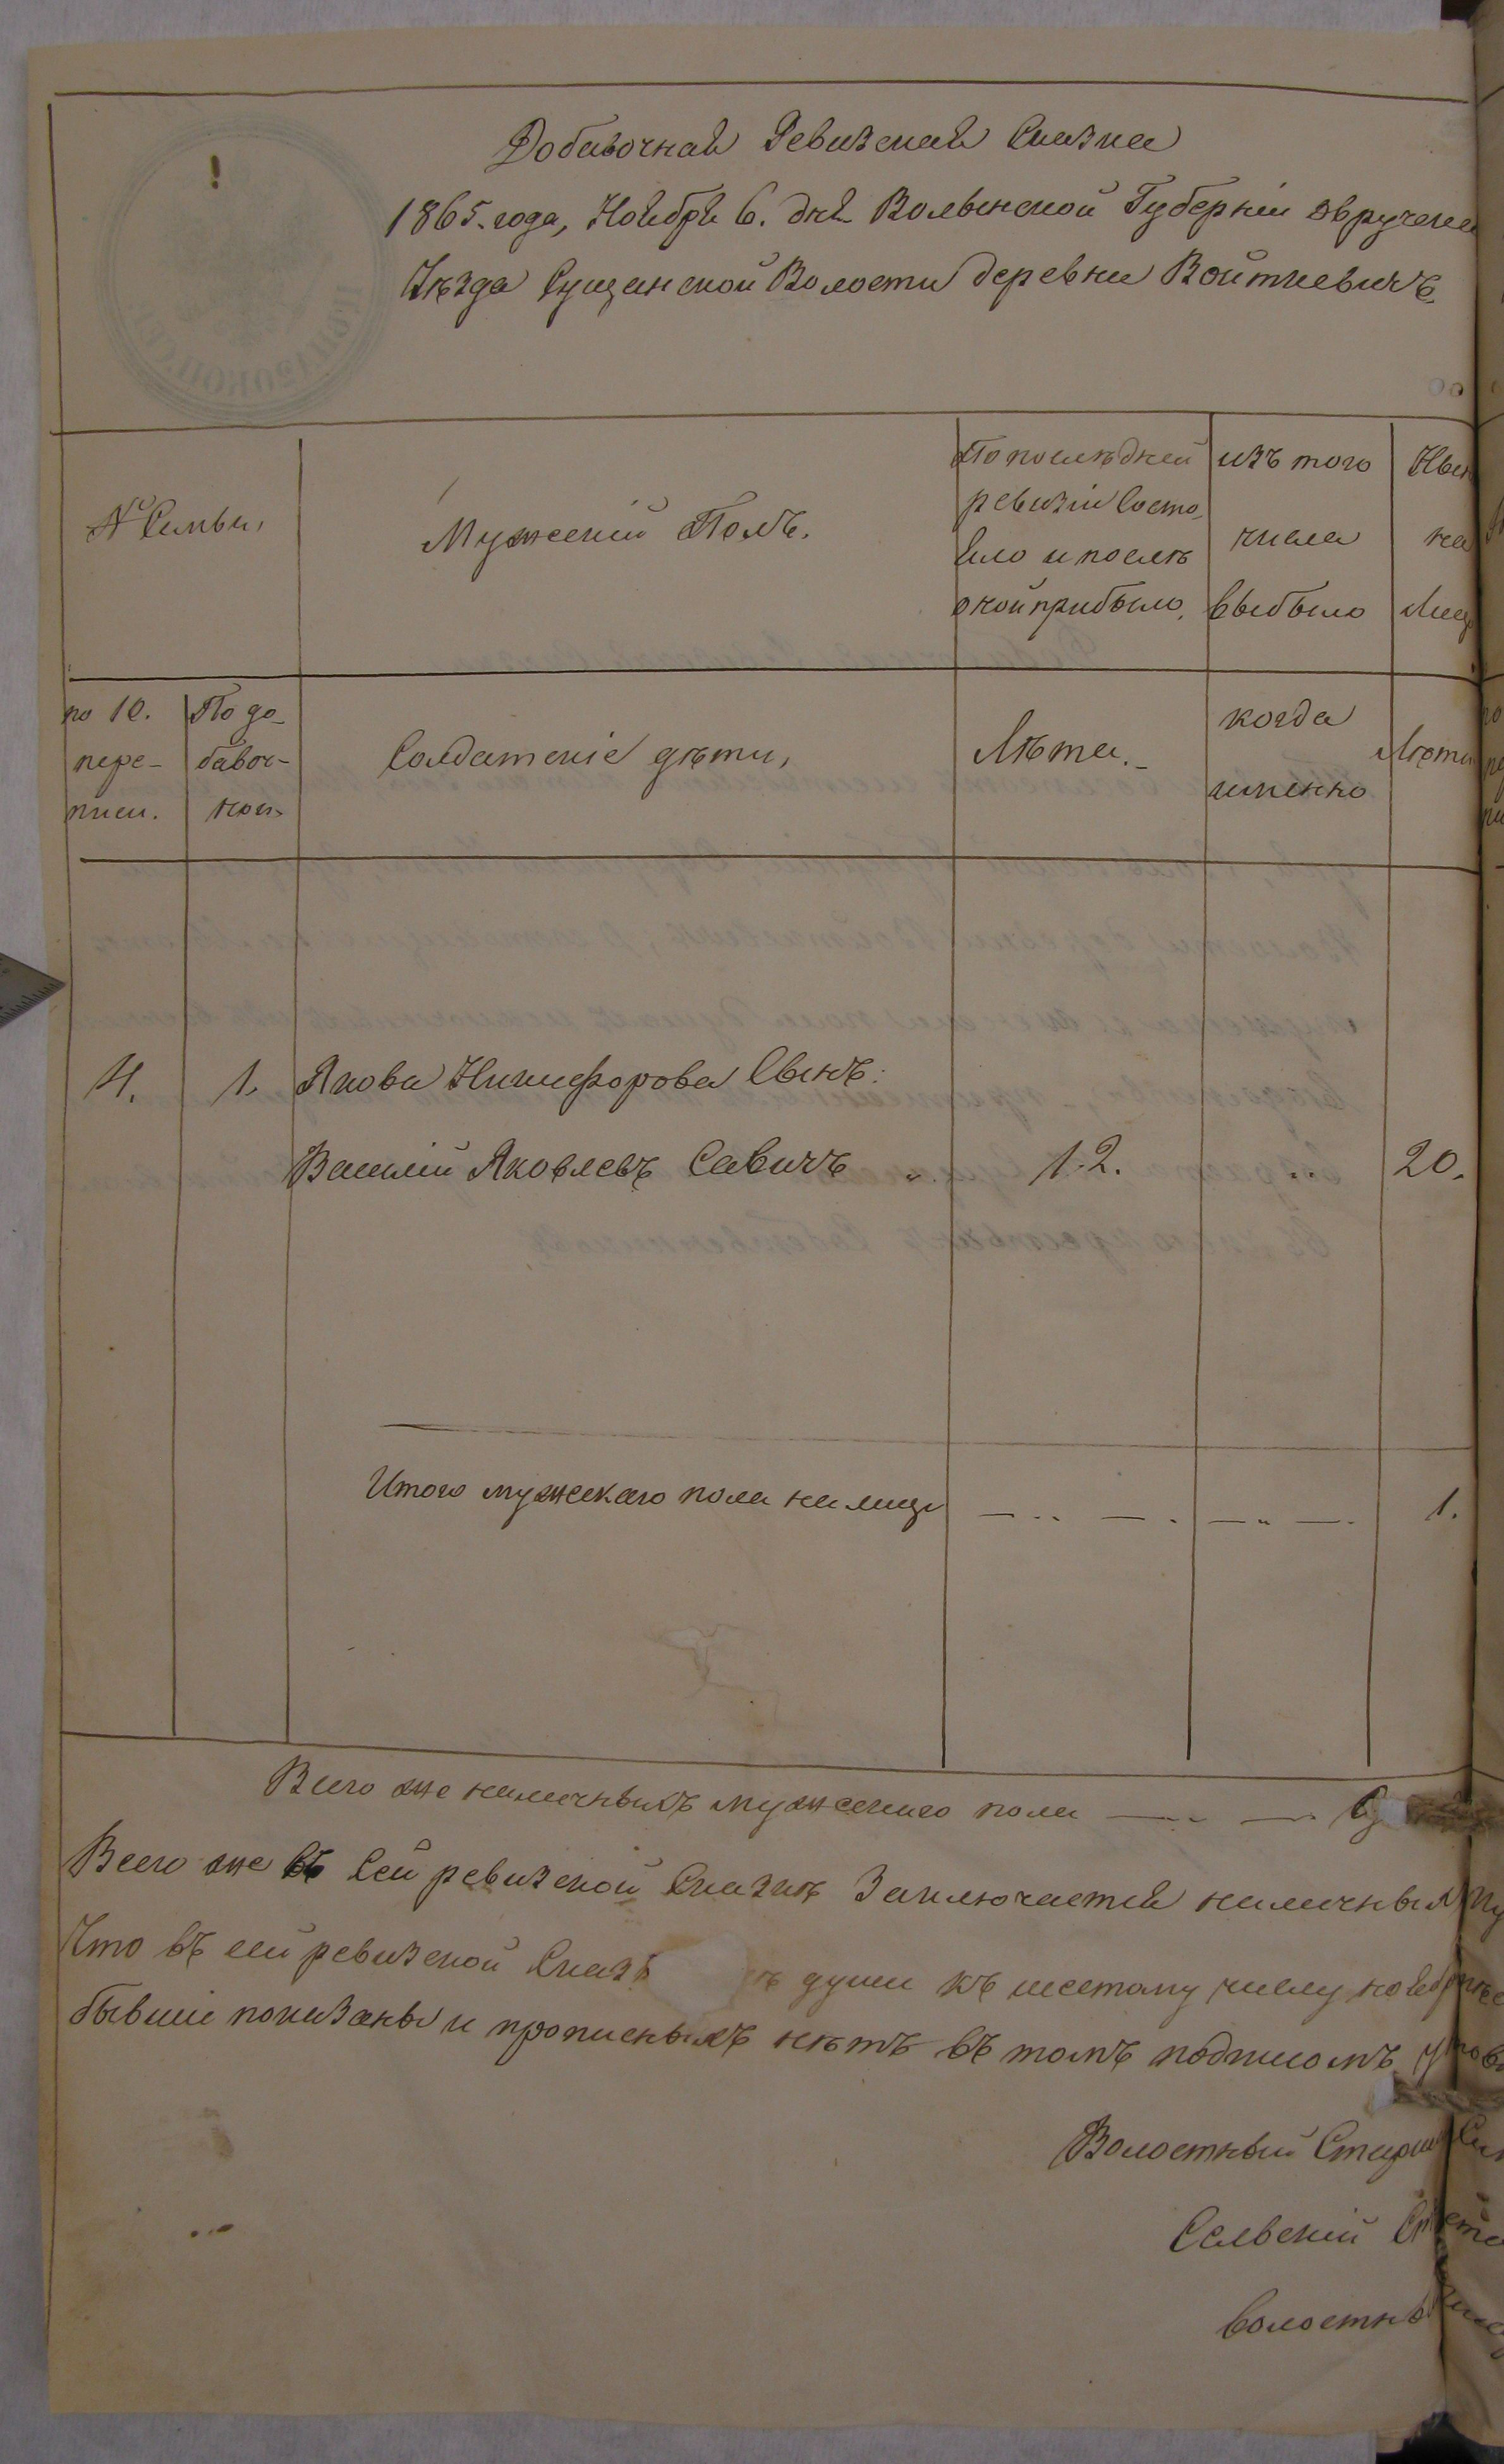 Добавочная Ревизская Сказка
1865. года, Ноября 6. дня Волынской Губерніи Овручска
Уѣзда Сущанской Волости деревни Войткевичъ
№ Семьи,
Мужескій Полъ.
По послѣдней
ревизіи состо-
яло и послѣ
оной прибыло,
изъ того
числа
выбыло
Нын
на
Лиц
по 10.
пере-
писи.
По до-
бавоч-
ной
Солдатскіе дѣти,
Лѣта.
когда
именно
Лѣта
4. 1. Якова Никифорова Сынъ:
Василій Яковлевъ Савичъ „ 12. „ 20.
Итого мужескаго пола на лицо — „ — . — „ — . 1.
Всего же наличныхъ мужескаго пола — „ — .
Всего же въ сей ревизской Сказкѣ Заключается наличныхъ
Что въ сей ревизской Сказк души къ шестому числу ноября
бывшіе показаны и прописныхъ нѣтъ въ томъ подписомъ
Волостный Старш
Сельскій
Волостн